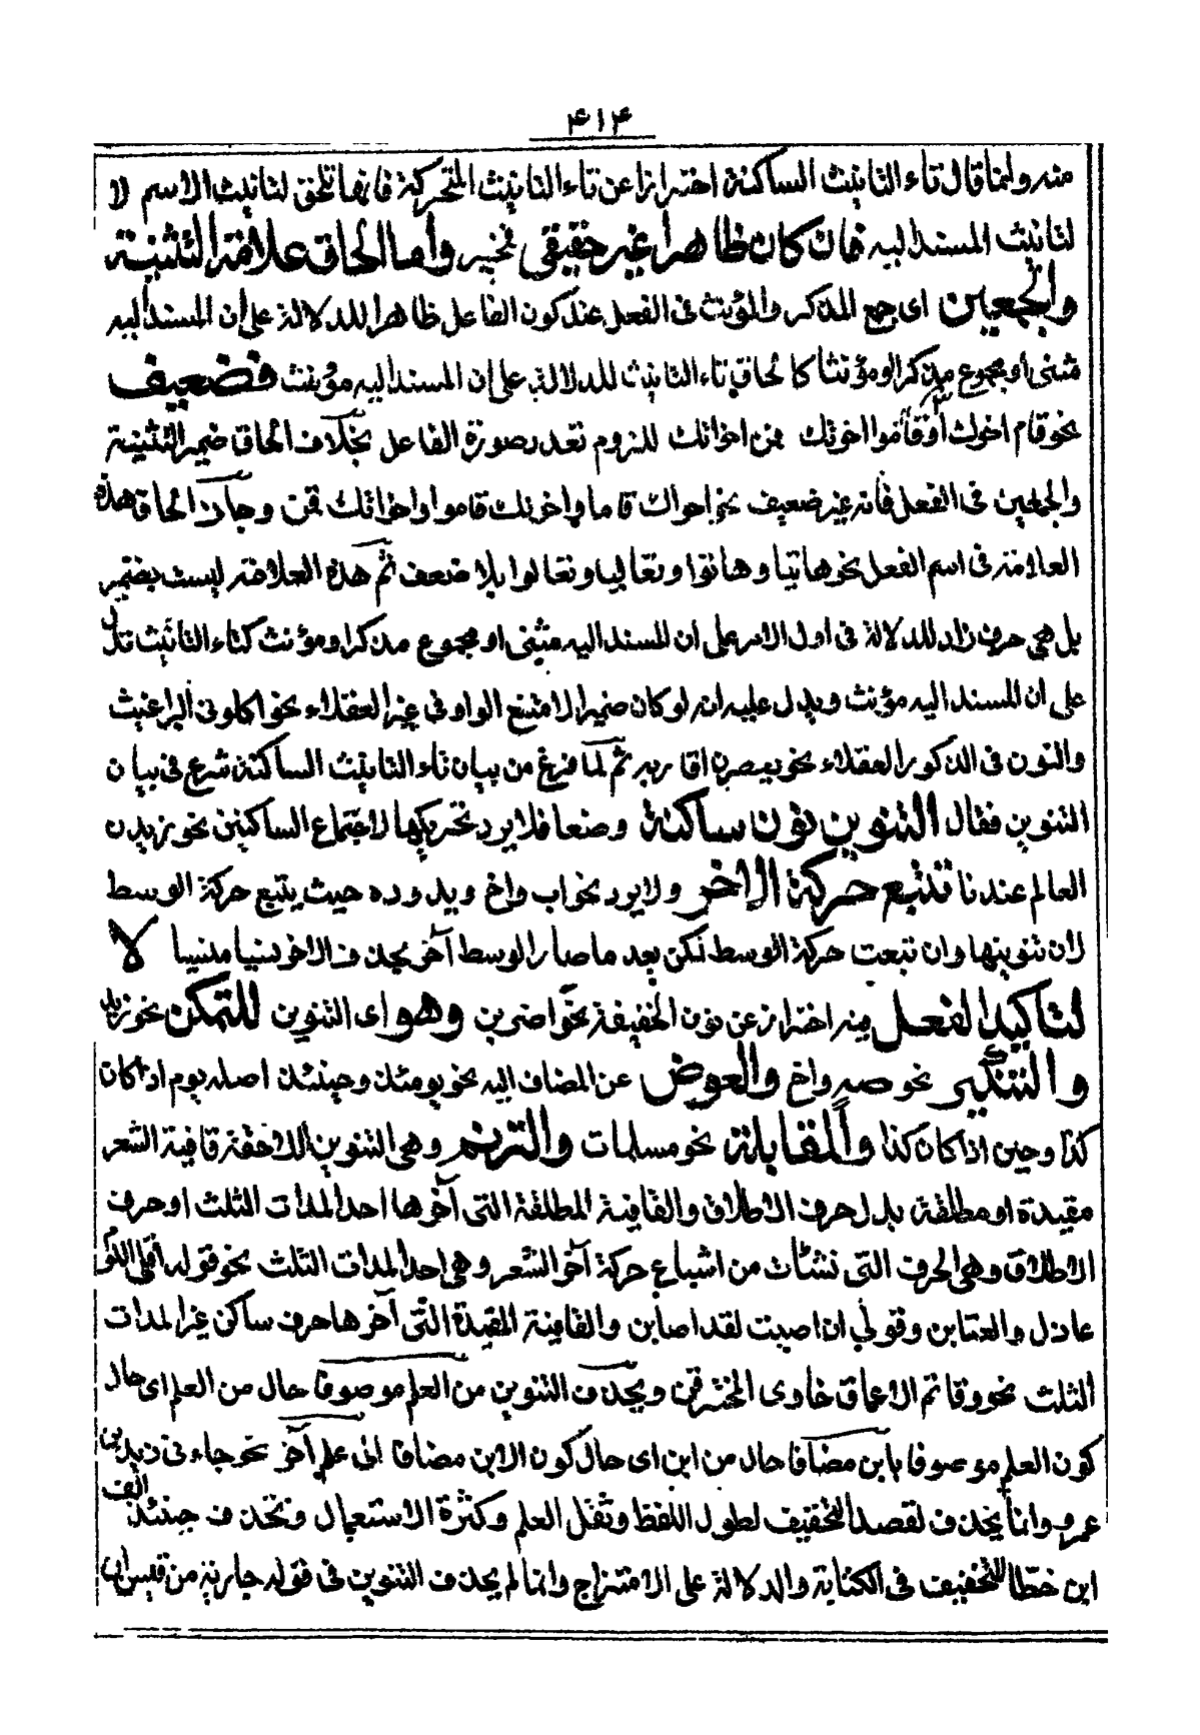 ۴۱۴
منه وانما قال تاء التانيث الساكنة احترازا عن تاء التانيث المتحركة فانها تلحق لتانيث الاسم لا
لتانيث المسند اليه فان كان ظاهرا غير حقيقي فمخير واما الحاق علامة التثنية
والجمعين اى جمع المذكر والمؤنث فى الفعل عند كون الفاعل ظاهرا للدلالة على ان المسند اليه
مثنى او مجموع مذكرا ومؤنثا كالحاق تاء التانيث للدلالة على ان المسند اليه مؤنث فضعيف
نحو قاما اخواك او قاموا اخوتك قمن اخواتك للزوم تعدد صورة الفاعل بخلاف الحاق ضمير التثنية
والجمعين فى الفعل فانه غير ضعيف نحو اخواك قاما واخوتك قاموا واخواتك قمن وجاز الحاق هذه
العلامة فى اسم الفعل نحو هاتيا وهاتوا وتعاليا وتعالوا بلا ضعف ثم هذه العلامة ليست بضمير
بل هى حرف زاد للدلالة فى اول الامر على ان المسند اليه مثنى او مجموع مذكرا ومؤنث كتاء التانيث تدل
على ان المسند اليه مؤنث ويدل عليه انه لو كان ضميرا لامتنع الواو فى غير العقلاء نحو اكلونى البراغيث
والنون فى الذكور العقلاء نحو يعصرن اقاربه ثم لما فرغ من بيان تاء التانيث الساكنة شرع فى بيان
التنوين فقال التنوين نون ساكنة وضعا فلا يرد تحريكها لاجتماع الساكنين نحو زيدن
العالم عندنا تتبع حركة الاخر ولا يرد نحو اب واخ ويد وده حيث يتبع حركة الوسط
لان تنوينها وان تبعت حركة الوسط لكن بعد ما صار الوسط آخر بحذف الاخر نسيا منسيا لا
لتاكيد الفعل فيه احتراز عن نون الخفيفة نحو اضربن وهو اى التنوين للتمكن نحو زيد
والتنكير نحو صه واخ والعوض عن المضاف اليه نحو يومئذ وحينئذ اصله يوم اذ كان
كذا وحين اذا كان كذا والمقابلة نحو مسلمات والترنم وهى التنوين اللاحقة قافية الشعر
مقيدة او مطلقة بدل حرف الاطلاق والقافية المطلقة التى آخرها احد المدات الثلث او حرف
الاطلاق وهى الحرف التى نشأت من اشباع حركة آخر الشعر وهى احد المدات الثلث نحو قوله اقلى اللوم
عاذل والعتابن وقولي ان اصبت لقد اصابن والقافية المقيدة التى آخرها حرف ساكن غير المدات
الثلث نحو وقاتم الاعماق خاوى المخترقن ويحذف التنوين من العلم موصوفا حال من العلم اى حال
كون العلم موصوفا بابن مضافا حال من ابن اى حال كون الابن مضافا الى علم آخر نحو جاءنى زيد بن
عمرو وانما يحذف لقصد التخفيف لطول اللفظ وثقل العلم وكثرة الاستعمال وتحذف حينئذ الف
ابن خطا للتخفيف فى الكتابة والدلالة على الامتزاج وانما لم يحذف التنوين فى قوله جارية من قيس ابن